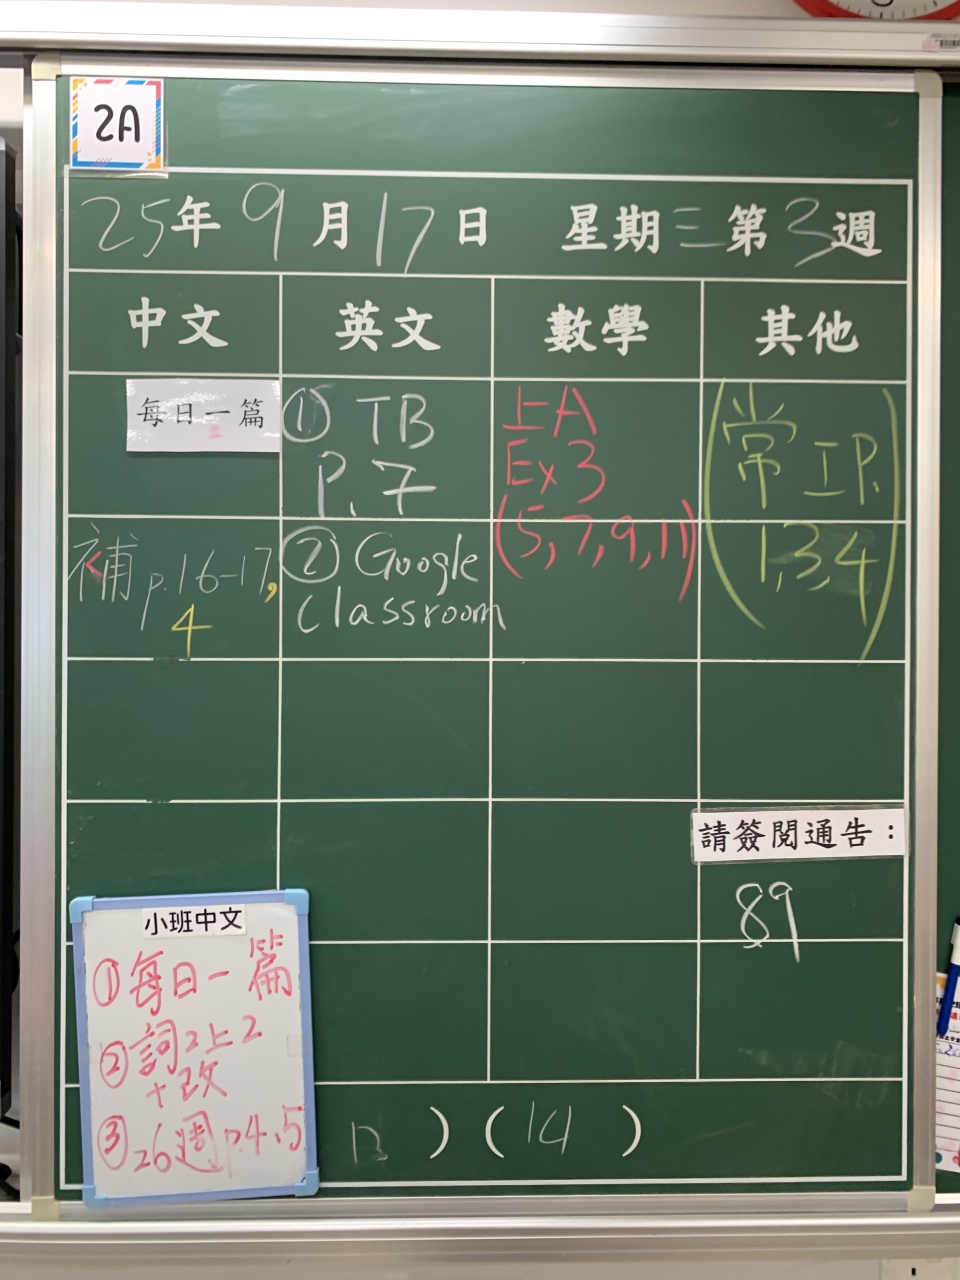 2A
25年9月17日 星期三第3週
中文 英文 數學 其他
每日一篇
補p.16-17,
4
① TB
P.7
② Google
Classroom
上A
Ex 3
(5,7,9,11)
(常 工P.
1,3,4)
請簽閱通告：
89
小班中文
①每日一篇
②詞2上2
+改
③26週p.4,5
13 ) ( 14 )